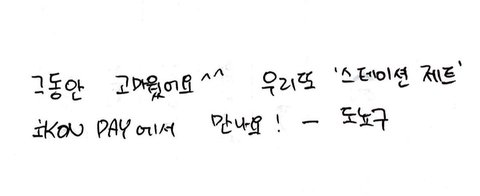 그동안 고마웠어요^^ 우리또 '스테이션 제트'
iKON PAY에서 만나요! - 도뇨구